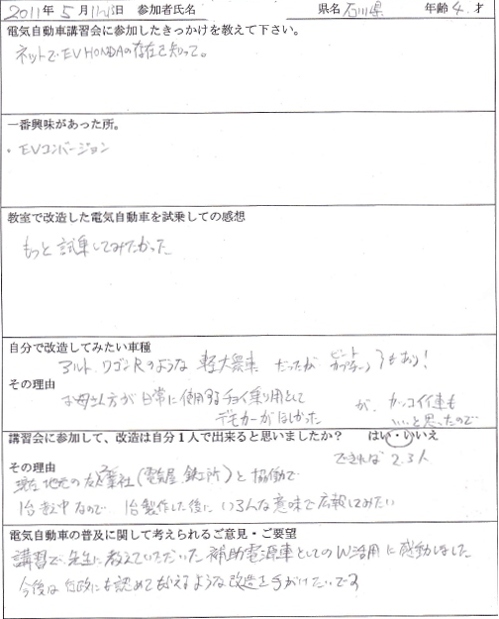 2011年 5月 日 参加者氏名 県名 石川県 年齢 4. 才
電気自動車講習会に参加したきっかけを教えて下さい。
ネットで EV HONDAの存在を知って。
一番興味があった所。
・EVコンバージョン
教室で改造した電気自動車を試乗しての感想
もっと 試乗してみたかった
自分で改造してみたい車種
アルト ワゴンRのような 軽大衆車 だったが ビート もあり!
その理由
お母さん方が 日常に使用するチョイ乗り用として が、カッコイイ車も
デモカーがほしかった いいと思ったので
講習会に参加して、改造は自分1人で出来ると思いましたか? はい・いいえ
その理由 できれば 2.3人
現在 地元の 業社(電気屋 鉄工所)と 協働で
1台 中なので 1台製作した後に いろんな意味で広報してみたい
電気自動車の普及に関して考えられるご意見・ご要望
講習で 先生に 教えていただいた 補助電源車としてのW活用に感動しました
今後は行政にも認めてもらえるような改造を手がけたいです